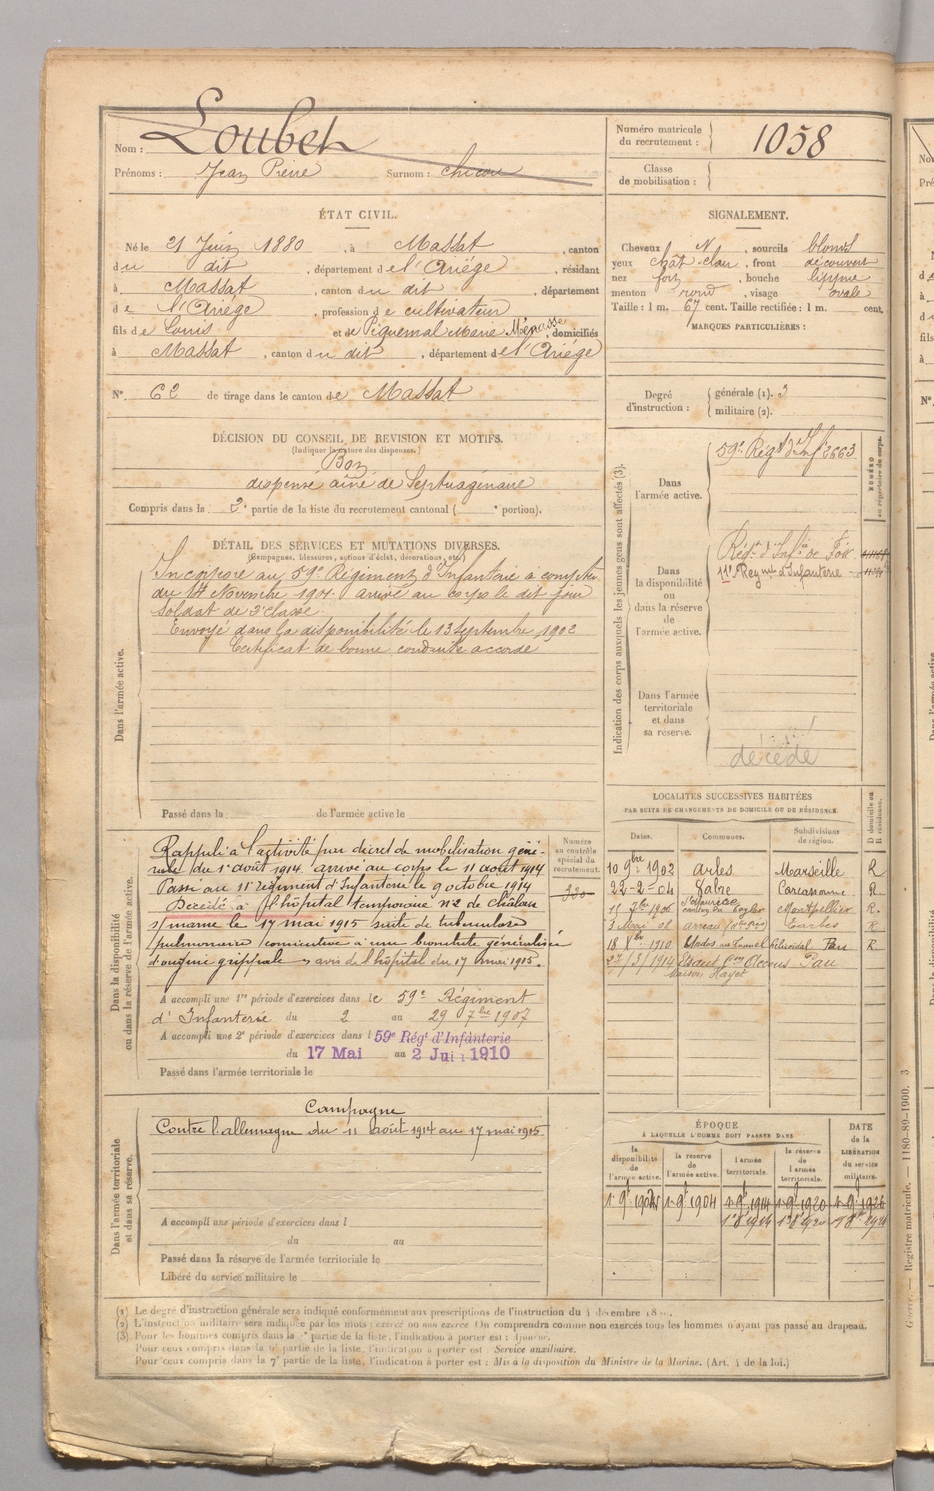 Nom : Loubet
Prénoms : Jean Pierre Surnom : chicou
Numéro matricule du recrutement : 1058
Classe de mobilisation :
ÉTAT CIVIL.
Né le 21 Juin 1880, à Massat, canton
du dit, département de l'Ariége, résidant
à Massat, canton du dit, département
de l'Ariége, profession de cultivateur
fils de Louis et de Piquemal Marie, domiciliés
à Massat, canton du dit, département de l'Ariége
N°. 62 de tirage dans le canton de Massat
SIGNALEMENT.
Cheveux N, sourcils blonds
yeux chât. clair, front découvert
nez fort, bouche lippue
menton rond, visage ovale
Taille : 1 m. 67 cent. Taille rectifiée : 1 m. cent.
MARQUES PARTICULIÈRES :
Degré d'instruction : générale (1). 3
militaire (2).
DÉCISION DU CONSEIL DE REVISION ET MOTIFS.
(Indiquer la nature des dispenses.)
Bon
dispensé aîné de Septuagénaire
Compris dans la 2e partie de la liste du recrutement cantonal ( e portion).
DÉTAIL DES SERVICES ET MUTATIONS DIVERSES.
(Campagnes, blessures, actions d'éclat, décorations, etc.)
Dans l'armée active.
Incorporé au 59e Régiment d'Infanterie à compter
du 14 Novembre 1901. arrivé au corps le dit jour
Soldat de 2e classe
Envoyé dans la disponibilité le 13 septembre 1902
Certificat de bonne conduite accordé
Passé dans la de l'armée active le
Indication des corps auxquels les jeunes gens sont affectés (3).
NUMÉRO au répertoire du corps.
Dans l'armée active.
59e Régt d'Inf 2663
Dans la disponibilité ou dans la réserve de l'armée active.
Régt d'Infie de Foix
11e Regmt d'Infanterie
Dans l'armée territoriale et dans sa réserve.
décédé
LOCALITÉS SUCCESSIVES HABITÉES
PAR SUITE DE CHANGEMENTS DE DOMICILE OU DE RÉSIDENCE.
Dates. Communes. Subdivisions de région. D domicile ou R résidence.
10 9bre 1902 Arles Marseille R
22-2-04 Fabre Carcassonne R
1906 Montpellier R.
3 Mai 08 Arreau Tarbes R
18 1910 Pau R
27/3/1914 Pau
Dans la disponibilité ou dans la réserve de l'armée active.
Numéro au contrôle spécial du recrutement.
Rappelé à l'activité par décret de mobilisation géné-
rale du 1er août 1914. arrivé au corps le 11 août 1914
Passé au 11e régiment d'Infanterie le 9 octobre 1914
Décédé à l'hôpital temporaire n°2 de Châlons
s/marne le 17 mai 1915 suite de tuberculose
pulmonaire consécutive à une bronchite généralisée
d'origine grippale avis de l'hôpital du 17 mai 1915.
A accompli une 1re période d'exercices dans le 59e Régiment
d'Infanterie du 2 au 29 7bre 1907
A accompli une 2e période d'exercices dans l 59e Régt d'Infanterie
du 17 Mai au 2 Juin 1910
Passé dans l'armée territoriale le
Dans l'armée territoriale et dans sa réserve.
Campagne
Contre l'allemagne du 11 août 1914 au 17 mai 1915
A accompli une période d'exercices dans l
du au
Passé dans la réserve de l'armée territoriale le
Libéré du service militaire le
ÉPOQUE
À LAQUELLE L'HOMME DOIT PASSER DANS
DATE de la LIBÉRATION du service militaire.
la disponibilité de l'armée active. la réserve de l'armée active. l'armée territoriale. la réserve de l'armée territoriale.
1er 9bre 1904 1er 9bre 1914 1er 9bre 1920 1er 9bre 1926
(1) Le degré d'instruction générale sera indiqué conformément aux prescriptions de l'instruction du 4 décembre 18
(2) L'instruction militaire sera indiquée par les mots : exercé ou non exercé On comprendra comme non exercés tous les hommes n'ayant pas passé au drapeau.
(3) Pour les hommes compris dans la partie de la liste, l'indication à porter est :
Pour ceux compris dans la 6e partie de la liste, l'indication à porter est : Service auxiliaire.
Pour ceux compris dans la 7e partie de la liste, l'indication à porter est : Mis à la disposition du Ministre de la Marine. (Art. 4 de la loi.)
Registre matricule. — 1180-89-1900. 3